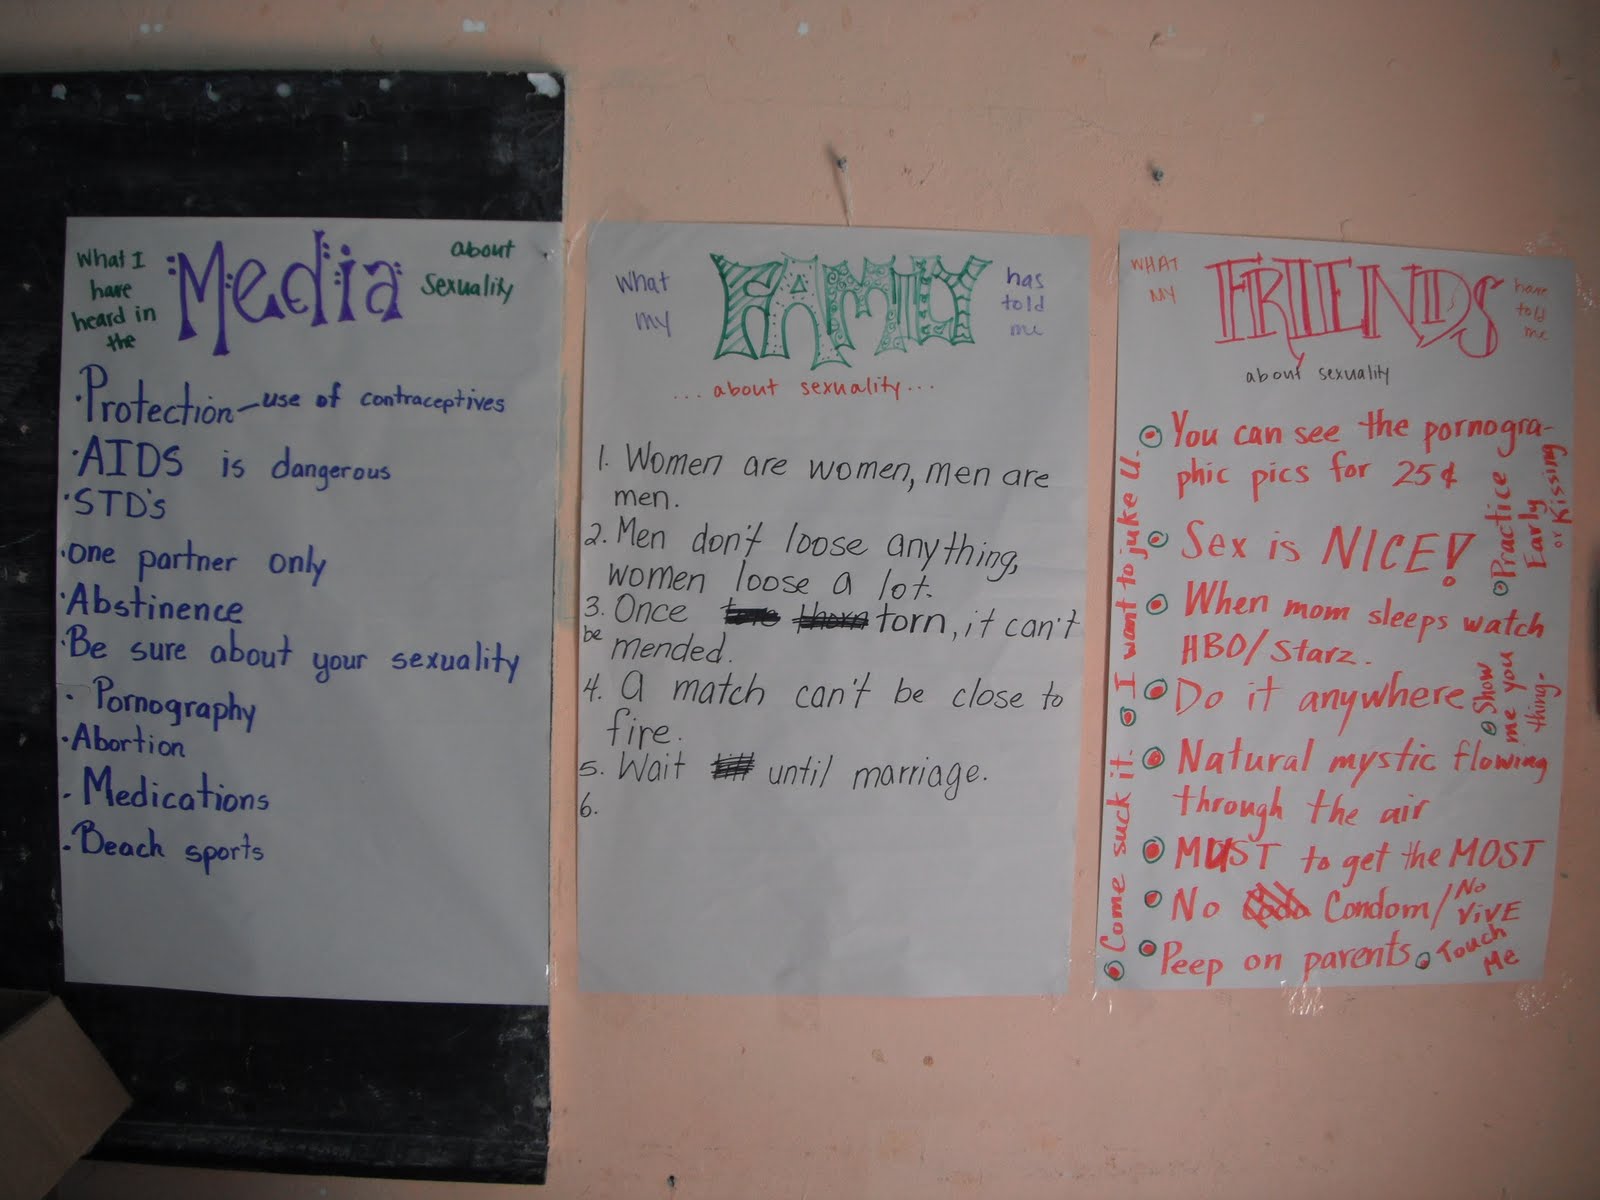 What I
have
heard in
the
Media
about
Sexuality
·Protection—use of contraceptives
·AIDS is dangerous
·STD's
·One partner only
·Abstinence
·Be sure about your sexuality
· Pornography
·Abortion
· Medications
· Beach sports
What
my
FAMILY
has
told
me
...about sexuality...
1. Women are women, men are
men.
2. Men don't loose anything,
women loose a lot.
3. Once torn, it can't
be mended.
4. A match can't be close to
fire.
5. Wait until marriage.
6.
WHAT
MY
FRIENDS
have
told
me
about sexuality
You can see the pornogra-
phic pics for 25¢
Sex is NICE!
When mom sleeps watch
HBO/Starz.
Do it anywhere
Natural mystic flowing
through the air
MUST to get the MOST
No Condom/No
ViVE
Peep on parents
Touch
Me
Come suck it.
I want to juke U.
Practice
Early
or Kissing
Show
me you
thing.